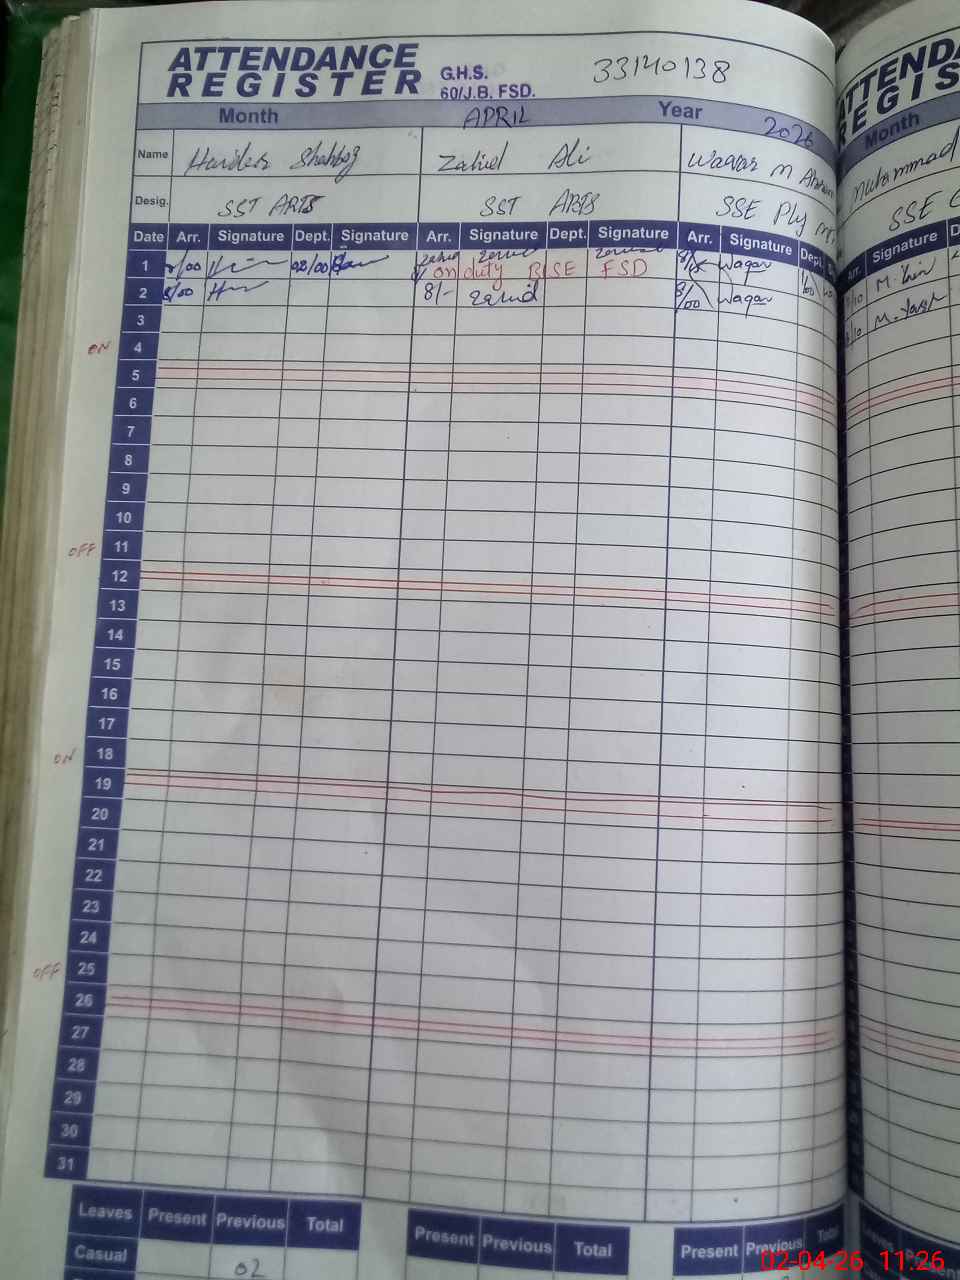 ATTENDANCE
REGISTER
G.H.S.
60/J.B. FSD.
33140138
Month APRIL Year 2026
Name Haider Shahbaz Zahid Ali Waqar M
Desig. SST ARTS SST ARTS SSE Phy
Date Arr. Signature Dept. Signature Arr. Signature Dept. Signature Arr. Signature Dept.
1 02/00 Zahid Waqar
on duty BISE FSD
2 8/00 8/- Zahid 8/00 Waqar
3
ON 4
5
6
7
8
9
10
OFF 11
12
13
14
15
16
17
ON 18
19
20
21
22
23
24
OFF 25
26
27
28
29
30
31
Leaves Present Previous Total Present Previous Total Present Previous Total
Casual 02
ATTENDA
REGIS
Month
Muhammad
SSE
Arr. Signature
M.
M.
02-04-26 11:26